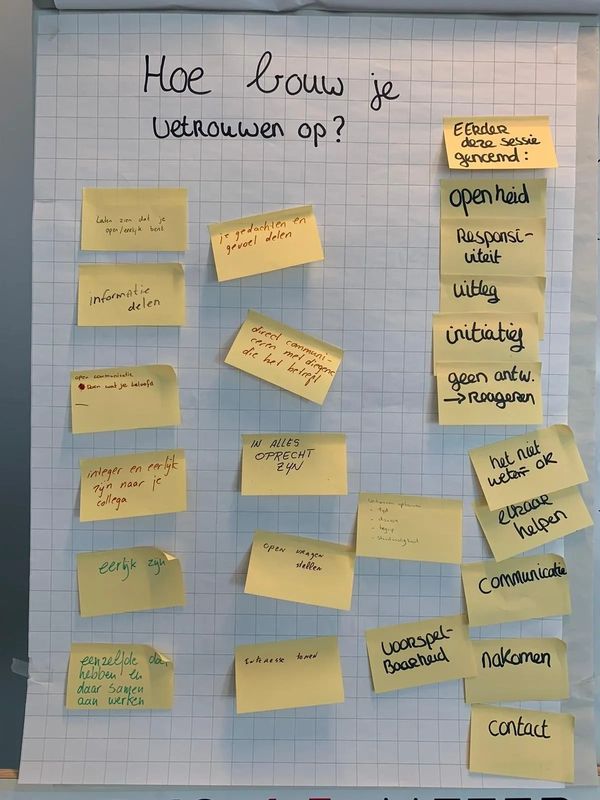 Hoe bouw je
vetrouwen op?
Laten zien dat je
open/eerlijk bent
informatie
delen
open communicatie
Doen wat je belooft
integer en eerlijk
zijn naar je
collega
eerlijk zijn
eenzelfde doel
hebben en
daar samen
aan werken
je gedachten en
gevoel delen
direct communi-
ceren met diegene
die het betreft
IN ALLES
OPRECHT
ZIJN
open vragen
stellen
Interesse tonen
- tijd
- begrip
VOORSPEL-
BAARHEID
EERDER
deze sessie
genoemd:
openheid
Responsi-
viteit
uitleg
initiatief
geen antw.
→ Reageren
het niet
weten = OK
elkaar
helpen
communicatie
nakomen
contact